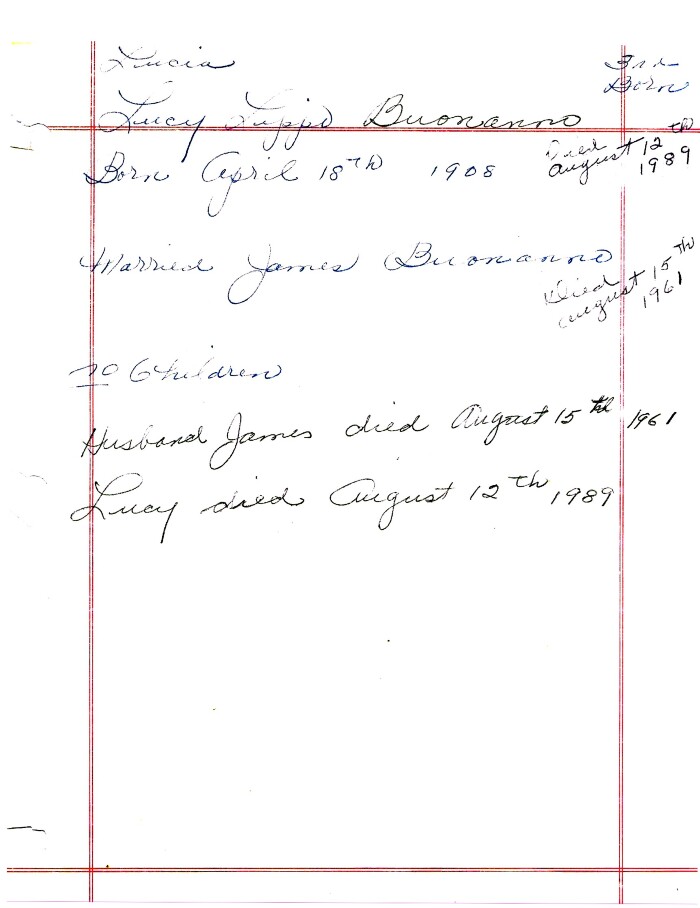 Lucia
3rd
Born
Lucy Lippo Buonanno
Born April 18th 1908
Died
August 12th
1989
Married James Buonanno
Died
August 15th
1961
no Children
Husband James died August 15th 1961
Lucy died August 12th, 1989